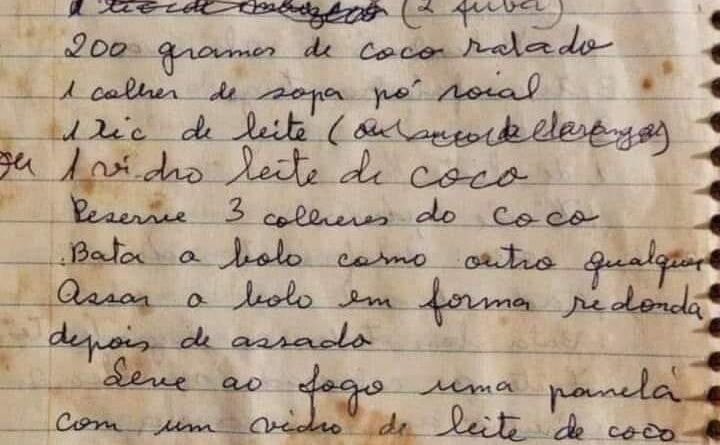 (2 fubá)
200 gramas de coco ralado
1 colher de sopa pó roial
1 xic de leite (ou suco de laranja)
ou 1 vidro leite de coco
Reserve 3 colheres do coco
.Bata o bolo como outro qualquer
Assar o bolo em forma redonda
depois de assado
Leve ao fogo uma panela
com um vidro de leite de coco